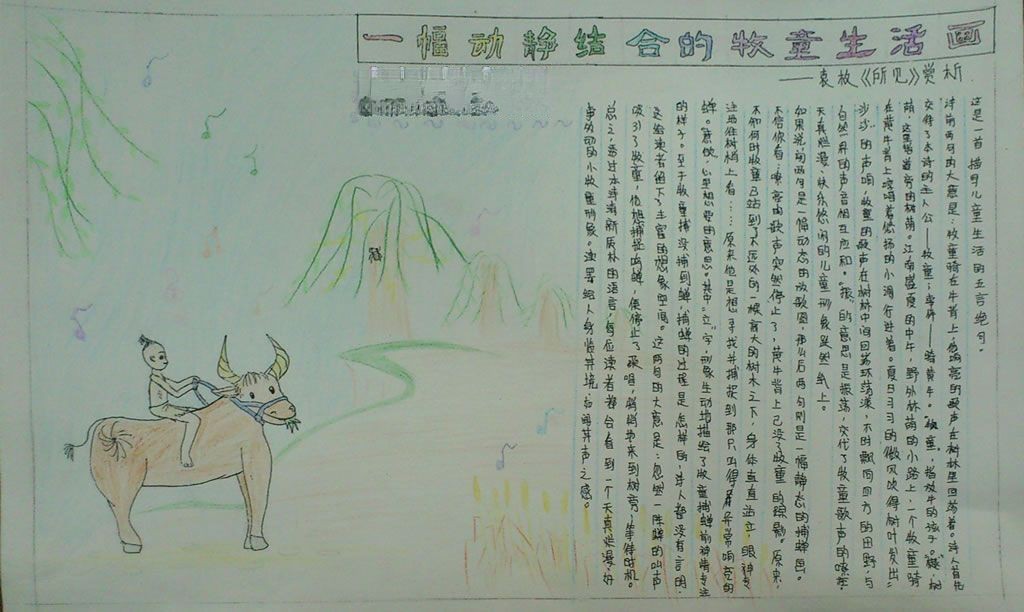 一幅动静结合的牧童生活画
——袁枚《所见》赏析
这是一首描写儿童生活的五言绝句。
诗前两句的大意是：牧童骑在牛背上，他响亮的歌声在树林里回荡着。诗人首先
交待了本诗的主人公——牧童；坐骑——骑黄牛。“牧童，指放牛的孩子。“樾”，树
荫，这里指道旁的树荫。江南盛夏的中午，野外林荫的小路上，一个牧童骑
在黄牛背上，哼唱着悠扬的小调行进着。夏日习习的微风吹得树叶发出
沙沙的声响，牧童的歌声在树林中间回荡环荡漾，不时飘向四方的田野，与
自然界的声音相互应和。“振”的意思是振荡，交代了牧童歌声的嘹亮
天真烂漫、快乐悠闲的儿童形象跃然纸上。
如果说，前两句是一幅动态的放歌图，那么后两句则是一幅静态的捕蝉图。
不信你看：嘹亮的歌声突然停止了，黄牛背上已没了牧童的踪影。原来，
不知何时牧童已站到了不远处的一棵高大的树木之下，身体直直站立，眼神专
注地往树梢上看……原来他是想寻找并捕捉到那只叫得异常响亮的
蝉。“意欲”，心里想要的意思。其中“立”字，形象生动地描绘了牧童捕蝉前神情专注
的样子。至于牧童捕没捕到蝉，捕蝉的过程是怎样的，诗人都没有言明，
这给读者留下了丰富的想象空间。这两句的大意是：忽然一阵蝉的叫声
吸引了牧童，他想捕捉鸣蝉，便停止了歌唱，悄悄地来到树旁，等待时机。
总之，透过本诗清新质朴的语言，每位读者都会看到一个天真烂漫、好
事好动的小牧童形象。读罢给人身临其境、如闻其声之感。